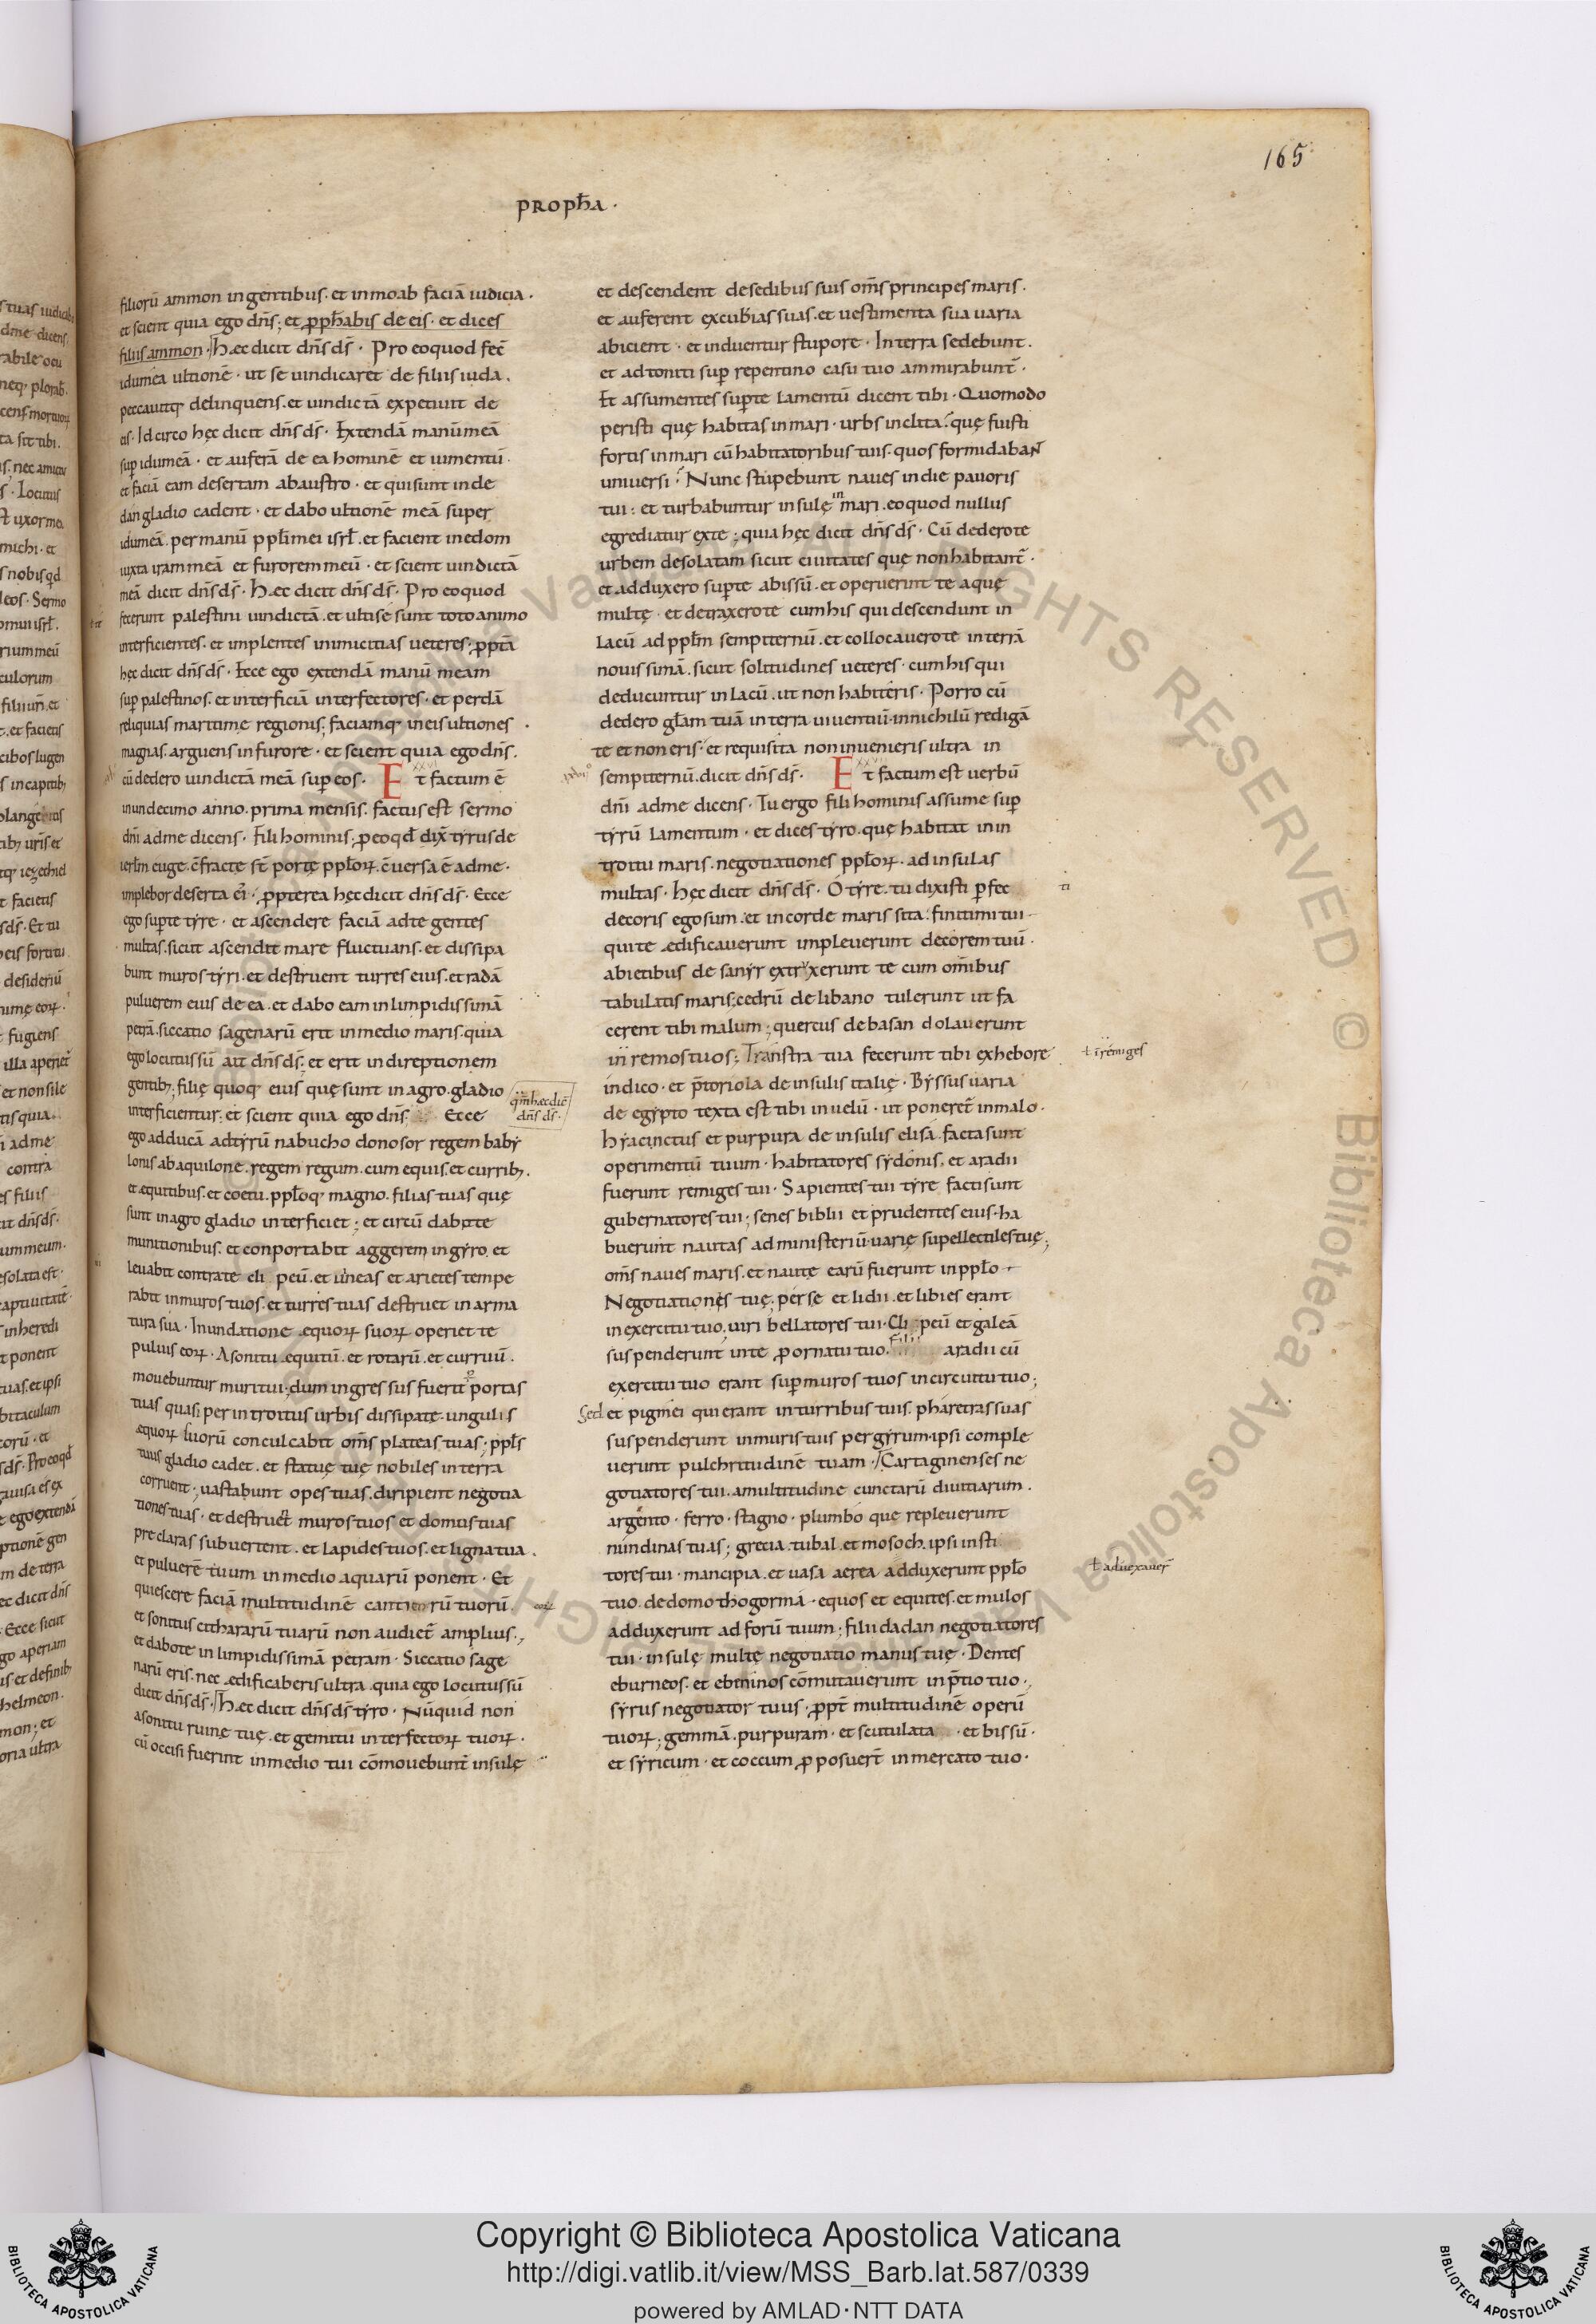 165
propħa ·
filiorū ammon in gentibus · et in moab faciā iudicia ·
et scient quia ego dn̄s ; et ꝓpħabis de eis · et dices
filiis ammon · Hæc dicit dn̄s ds̄ · Pro eo quod fec̄
idumea ultionē · ut se uindicaret de filiis iuda ·
peccauitq delinquens · et uindictā expetiuit de
eis · Idcirco hęc dicit dn̄s ds̄ · Extendā manū meā
suꝑ idumeā · et auferā de ea hominē et iumentū ·
et faciā eam desertam ab austro · et qui sunt in de
dan gladio cadent · et dabo ultionē meā super
idumeā · per manū pp̄li mei isrl̄ · et facient in edom
iuxta iram meā et furorem meū · et scient uindictā
meā dicit dn̄s ds̄ · Hæc dicit dn̄s ds̄ · Pro eo quod
fecerunt palestini uindictā · et ulti se sunt toto animo
interficientes · et implentes inimicitias ueteres · ꝓptā
hęc dicit dn̄s ds̄ · Ecce ego extendā manū meam
suꝑ palestinos · et interficiā interfectores · et perdā
reliquias maritimę regionis ; faciamq in eis ultiones
magnas · arguens in furore · et scient quia ego dn̄s ·
cū dedero uindictā meā suꝑ eos · Et factum ē
in undecimo anno · prima mensis · factus est sermo
dn̄i ad me dicens · Fili hominis ; ꝓ eo qđ dix̄ tyrus de
ierlm̄ euge · c̄fractę st̄ portę pp̄loꝝ · c̄uersa ē ad me ·
implebor deserta ē · ꝓpterea hęc dicit dn̄s ds̄ · Ecce
ego suꝑ te tyre · et ascendere faciā ad te gentes
multas · sicut ascendit mare fluctuans · et dissipa
bunt muros tyri · et destruent turres eius · et radā
puluerem eius de ea · et dabo eam in limpidissimā
petrā · siccatio sagenarū erit in medio maris · quia
ego locutus sū ait dn̄s ds̄ ; et erit in direptionem
gentibꝫ ; filię quoq eius quę sunt in agro · gladio
interficientur ; et scient quia ego dn̄s · Ecce
qm̄ hæc dic̄
dn̄s ds̄ ·
ego adducā ad tyrū nabuchodonosor regem baby
lonis ab aquilone · regem regum · cum equis · et curribꝫ ·
et æquitibus · et coetu · pp̄loq magno · filias tuas quę
sunt in agro gladio interficiet ; et circū dabit te
munitionibus · et conportabit aggerem in gyro · et
leuabit contra te cli peū · et uineas et arietes tempe
rabit in muros tuos · et turres tuas destruet in arma
tura sua · Inundatione æquoꝝ suoꝝ operiet te
puluis eoꝝ · A sonitu æquitū · et rotarū · et curruū ·
mouebuntur muri tui ; dum ingressus fuerit ꝑ portas
tuas quasi per introitus urbis dissipatę · ungulis
æquoꝝ suorū conculcabit om̄s plateas tuas · pp̄ls
tuus gladio cadet · et statuę tuę nobiles in terra
corruent ; uastabunt opes tuas · diripient negotia
tiones tuas · et destruet muros tuos et domus tuas
preclaras subuertent · et lapides tuos · et ligna tua ·
et puluerē tuum in medio aquarū ponent · Et
quiescere faciā multitudinē canticorū tuorū ·
et sonitus cithararū tuarū non audiet̄ amplius ·
et dabo te in limpidissimā petram · Siccatio sage
narū eris · nec ædificaberis ultra · quia ego locutus sū
dicit dn̄s ds̄ · Hæc dicit dn̄s ds̄ tyro · Nūquid non
a sonitu ruinę tuę · et gemitu interfectoꝝ tuoꝝ ·
cū occisi fuerint in medio tui cōmouebunt̄ insulę
et descendent de sedibus suis om̄s principes maris ·
et auferent excubias suas · et uestimenta sua uaria
abicient · et induentur stupore · In terra sedebunt ·
et adtoniti suꝑ repentino casu tuo ammirabunt̄ ·
Et assumentes suꝑ te lamentū dicent tibi · Quomodo
peristi quę habitas in mari · urbs inclita · quę fuisti
fortis in mari cū habitatoribus tuis · quos formidabant
uniuersi · Nunc stupebunt naues in die pauoris
tui : et turbabuntur insulę in mari · eo quod nullus
egrediatur ex te ; quia hęc dicit dn̄s ds̄ · Cū dedero te
urbem desolatam sicut ciuitates quę non habitant̄ ·
et adduxero suꝑ te abissū · et operuerint te aquę
multę · et detraxero te cum his qui descendunt in
lacū ad pp̄lm̄ sempiternū · et collocauero te in terrā
nouissimā · sicut solitudines ueteres · cum his qui
deducuntur in lacū · ut non habiteris · Porro cū
dedero gl̄am tuā in terra uiuentiū · in nichilū redigā
te et non eris · et requisita non inuenieris ultra in
sempiternū · dicit dn̄s ds̄ · Et factum est uerbū
dn̄i ad me dicens · Tu ergo fili hominis assume suꝑ
tyrū lamentum · et dices tyro · quę habitat in in
troitu maris · negotiationes pp̄loꝝ · ad insulas
multas · Hęc dicit dn̄s ds̄ · O tyre · tu dixisti ꝑfec
ti
decoris ego sum · et in corde maris sita · finitimi tui
qui te ædificauerunt impleuerunt decorem tuū ·
abietibus de sanyr extruxerunt te cum om̄ibus
tabulatis maris ; cedrū de libano tulerunt ut fa
cerent tibi malum ; quercus de basan dolauerunt
in remos tuos ; Transtra tua fecerunt tibi ex hebore
ł in remiges
indico · et p̄toriola de insulis italię · Byssus uaria
de egypto texta est tibi in uelū · ut poneret̄ in malo ·
hyacinctus et purpura de insulis elisa · facta sunt
operimentū tuum · habitatores sydonis · et aradii
fuerunt remiges tui · Sapientes tui tyre facti sunt
gubernatores tui ; senes biblii et prudentes eius · ha
buerunt nautas ad ministeriū uarię supellectiles tuę ;
om̄s naues maris · et nautę earū fuerunt in pp̄lo
Negotiationes tuę · persę et lidii · et libies erant
in exercitu tuo · uiri bellatores tui · Cli peū et galeā
suspenderunt in te ꝓ ornatu tuo · filii aradii cū
exercitu tuo erant suꝑ muros tuos in circuitu tuo ;
Sed et pigmei qui erant in turribus tuis · pharetras suas
suspenderunt in muris tuis per gyrum · ipsi comple
uerunt pulchritudinē tuam · Cartaginenses ne
gotiatores tui · a multitudine cunctarū diuitiarum ·
argento · ferro · stagno · plumbo que repleuerunt
nundinas tuas ; grecia · tubal · et mosoch · ipsi insti
tores tui · mancipia · et uasa aerea adduxerunt pp̄lo
ł aduexauer̄
tuo · de domo thogorma · equos et equites · et mulos
adduxerunt ad forū tuum ; filii dadan negotiatores
tui · insulę multę negotiatio manus tuę · Dentes
eburneos · et ebeninos cōmutauerunt in p̄tio tuo ·
syrus negotiator tuus · ꝓpt̄ multitudinē operū
tuoꝝ ; gemmā · purpuram · et scutulata · et bissū ·
et syricum · et coccum ꝓposuer̄t in mercato tuo ·
Copyright © Biblioteca Apostolica Vaticana
http://digi.vatlib.it/view/MSS_Barb.lat.587/0339
powered by AMLAD·NTT DATA
BIBLIOTECA APOSTOLICA VATICANA
BIBLIOTECA APOSTOLICA VATICANA